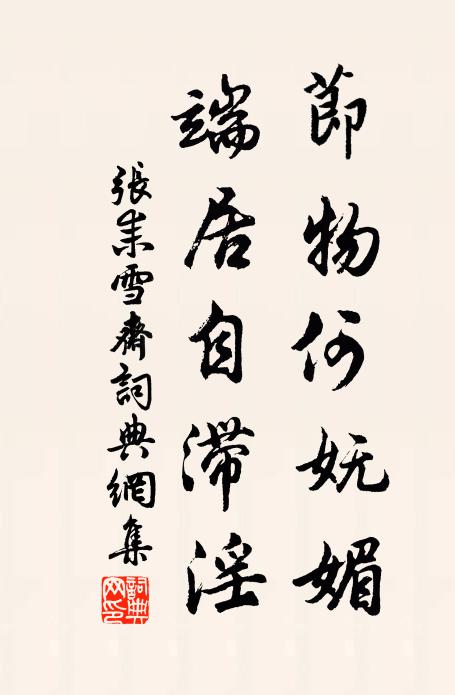 節物何妩媚
端居自滞淫
張耒雪齋詞典網集
詞典网印